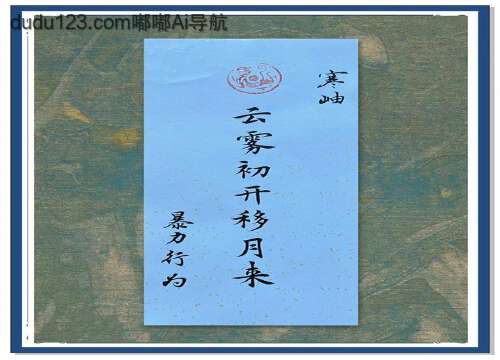 dudu123.com嘟嘟Ai导航
寒岫
云雾初开移月来
暴力行为